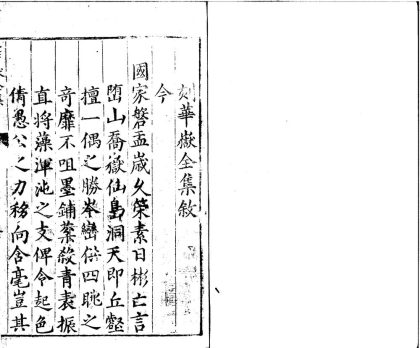 刻華嶽全集敘
今
國家磐盂歲久榮素日彬亡言
墮山喬嶽仙島洞天即丘壑
擅一偶之勝岑巒供四眺之
奇靡不咀墨鋪蘂殺青袠振
直將藻渾沌之支俾令起色
倩愚公之力移向含毫豈其